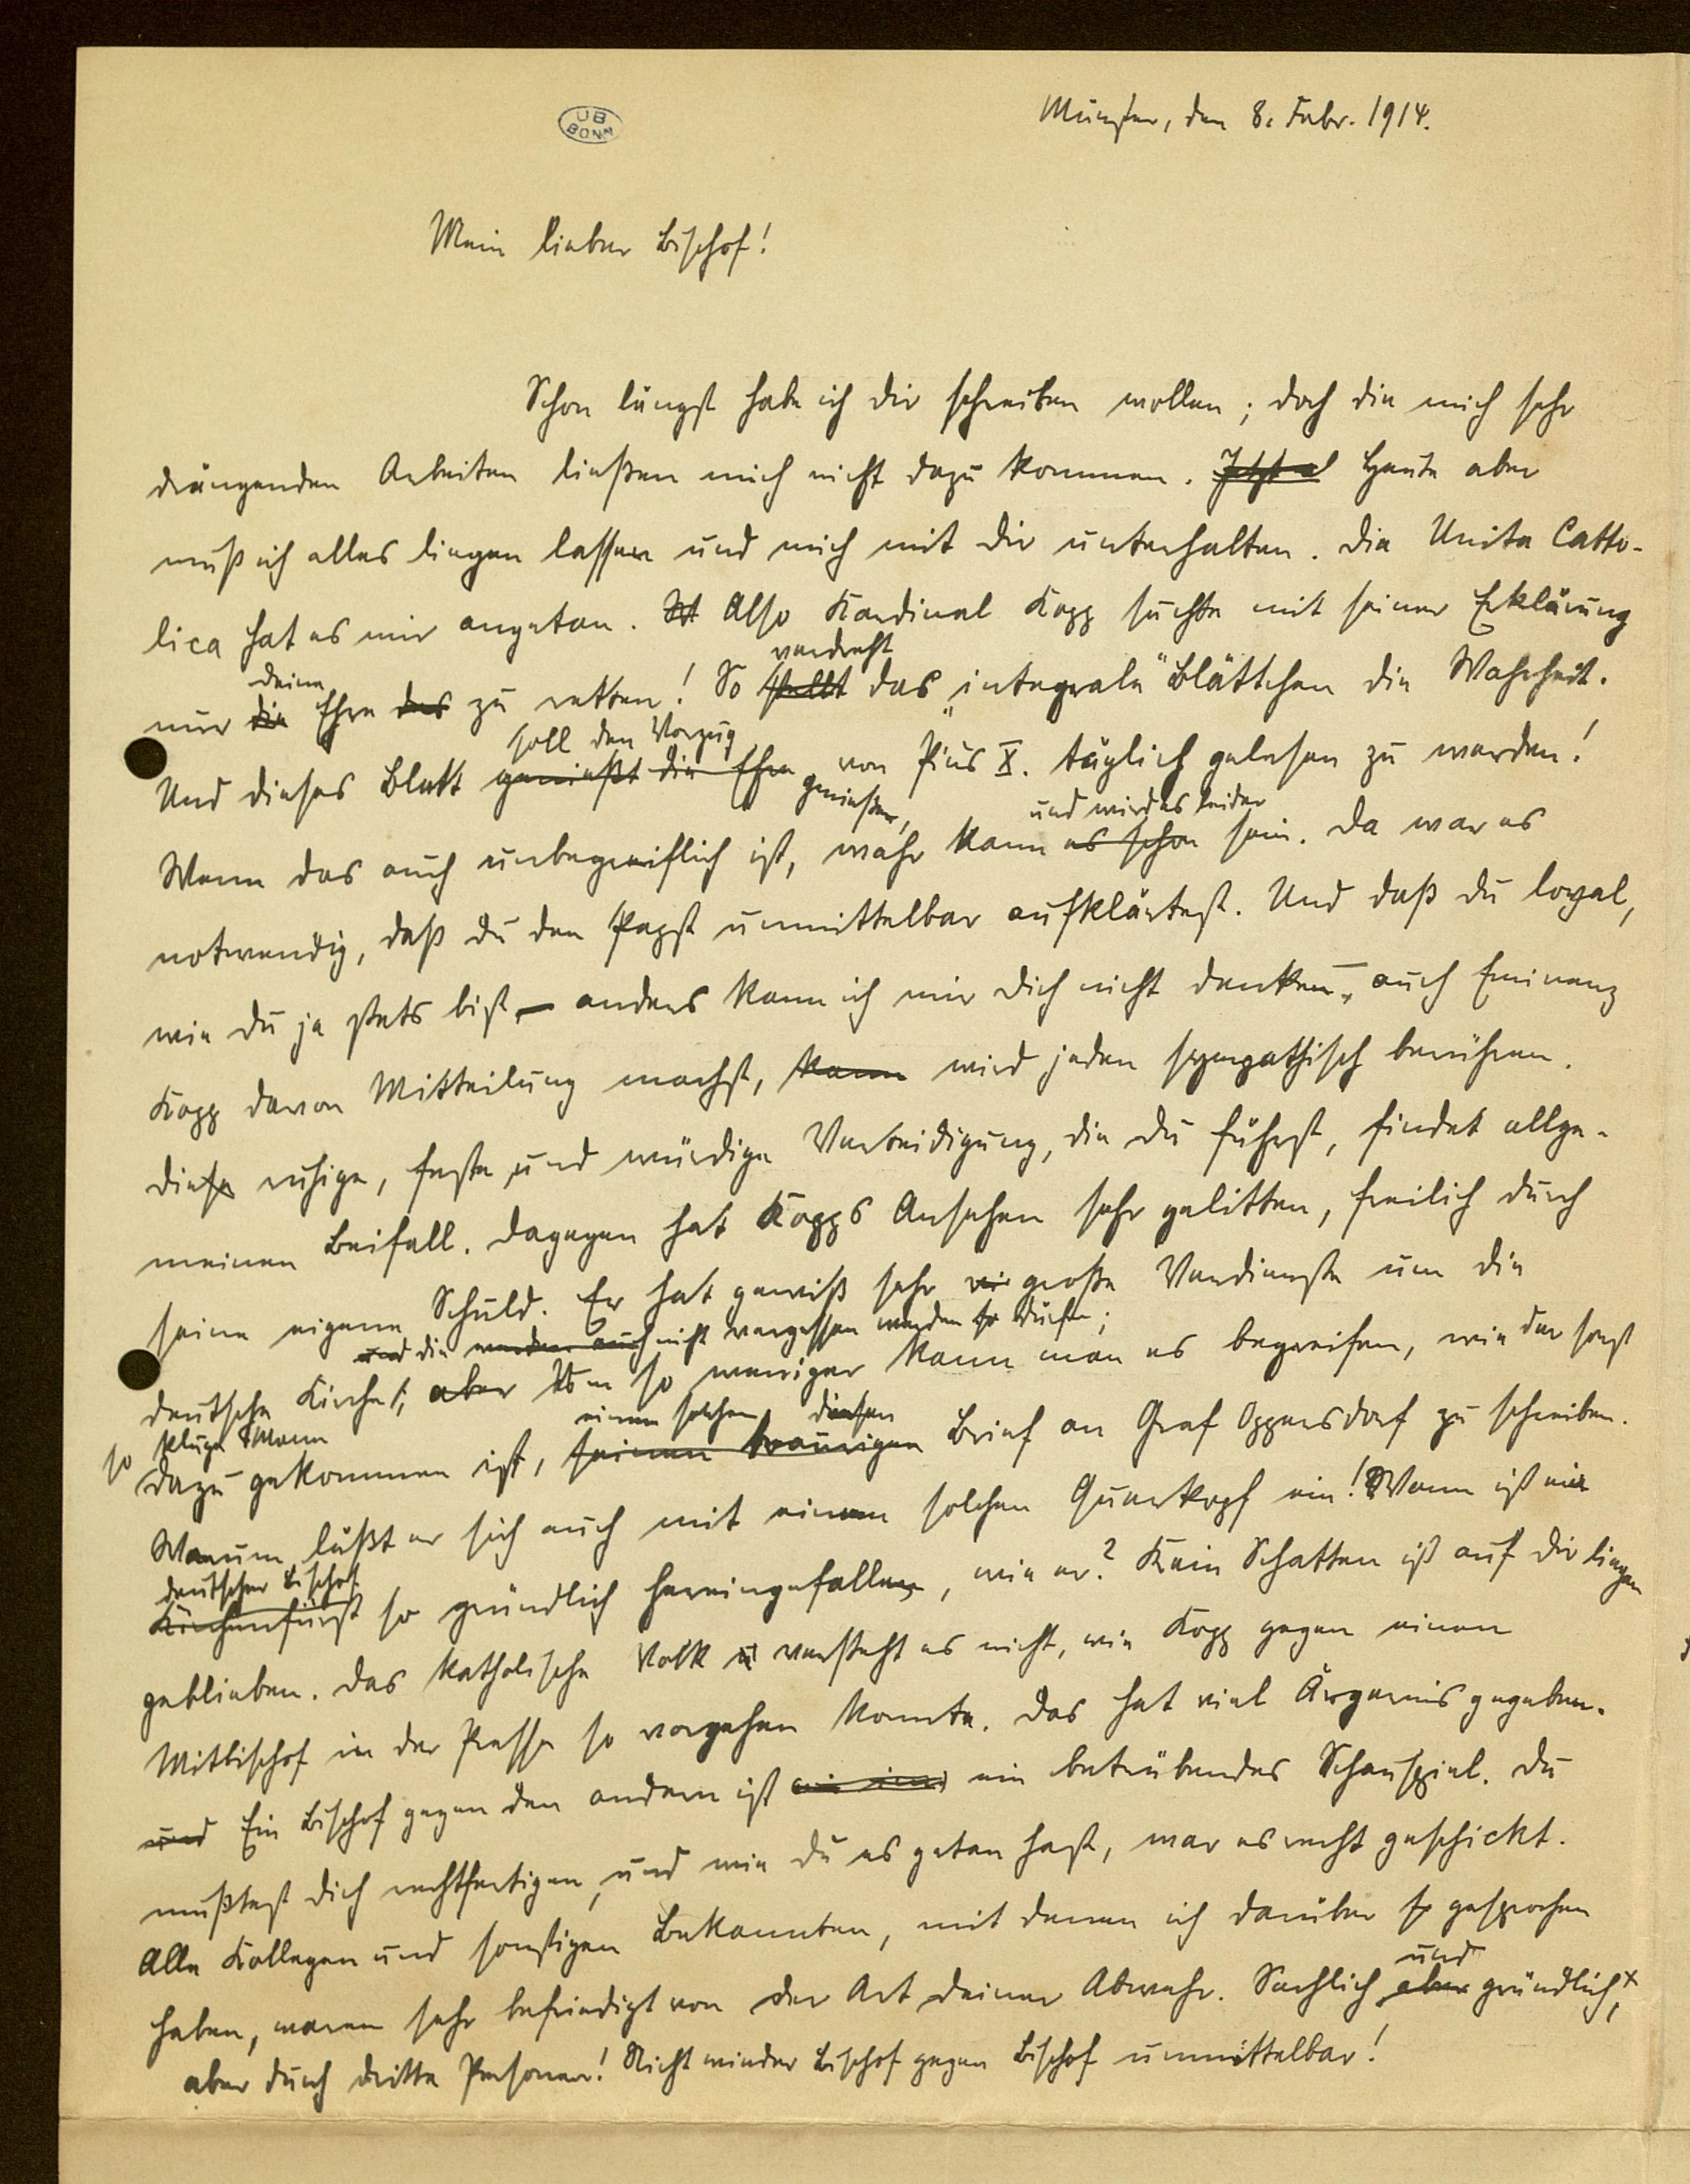 UB
BONN
Münster, den 8. Febr. 1914.
Mein lieber Bischof!
Schon längst habe ich dir schreiben wollen; doch die mich sehr
drängenden Arbeiten ließen mich nicht dazu kommen. Heute aber
muß ich alles liegen lassen und mich mit dir unterhalten. Die Unita Catto-
lica hat es mir angetan. Also Kardinal Kopp suchte mit seiner Erklärung
verdreht
deine
nur die Ehre das zu retten! So stellt das „integrale" Blättchen die Wahrheit.
soll den Vorzug
Und dieses Blatt genießt die Ehre genießen, von Pius X. täglich gelesen zu werden!
und wird es leider
Wenn das auch unbegreiflich ist, wahr kann es schon sein. Da war es
notwendig, daß du den Papst unmittelbar aufklärtest. Und daß du loyal,
wie du ja stets bist, – anders kann ich mir dich nicht denken –, auch Eminenz
Kopp davon Mitteilung machst, kann wird jeden sympathisch berühren.
Diese ruhige, feste und würdige Verteidigung, die du führst, findet allge-
meinen Beifall. Dagegen hat Kopps Ansehen sehr gelitten, freilich durch
seine eigene Schuld. Er hat gewiß sehr große Verdienste um die
und die werden auch nicht vergessen werden dürfen;
deutsche Kirche!; aber Um so weniger kann man es begreifen, wie der sonst
so kluge Mann
einen solchen diesen
dazu gekommen ist, seinen traurigen Brief an Graf Oppersdorf zu schreiben.
Warum läßt er sich auch mit einem solchen Querkopf ein! Wann ist ein
deutscher Bischof
Kirchenfürst so gründlich hereingefallen, wie er? Kein Schatten ist auf dir liegen
geblieben. Das katholische Volk versteht es nicht, wie Kopp gegen einen
Mitbischof in der Presse so vorgehen konnte. Das hat viel Ärgernis gegeben.
und Ein Bischof gegen den andern ist ein betrübendes Schauspiel. Du
mußtest dich rechtfertigen, und wie du es getan hast, war es recht geschickt.
Alle Kollegen und sonstigen Bekannten, mit denen ich darüber gesprochen
und
haben, waren sehr befriedigt von der Art deiner Abwehr. Sachlich aber gründlich,x
aber durch dritte Personen! Nicht wieder Bischof gegen Bischof unmittelbar!